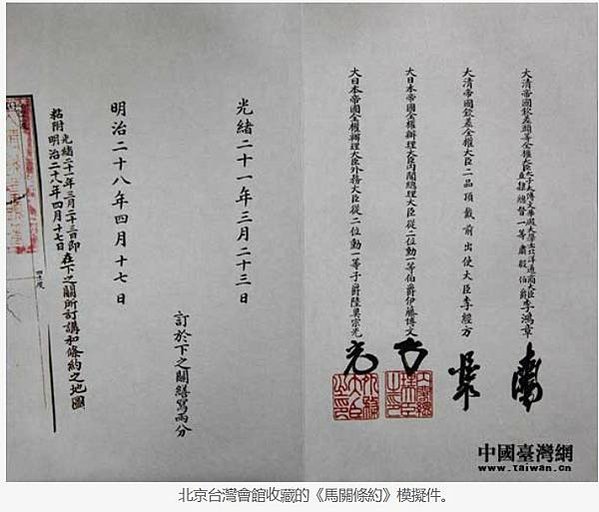 大清帝國欽差頭等全權大臣太子太傅文華殿大學士北洋通商大臣直隸總督一等肅毅伯爵李鴻章
大清帝國欽差全權大臣二品頂戴前出使大臣李經方
大日本帝國全權辦理大臣內閣總理大臣從二位勳一等伯爵伊藤博文
大日本帝國全權辦理大臣外務大臣從二位勳一等子爵陸奧宗光
光緒二十一年三月二十三日
明治二十八年四月十七日
訂於下之關繕寫兩分
粘附光緒二十一年三月二十三日即在下之關所訂講和條約之地圖
明治二十八年四月十七日
中國臺灣網
www.taiwan.cn
北京台灣會館收藏的《馬關條約》模擬件。